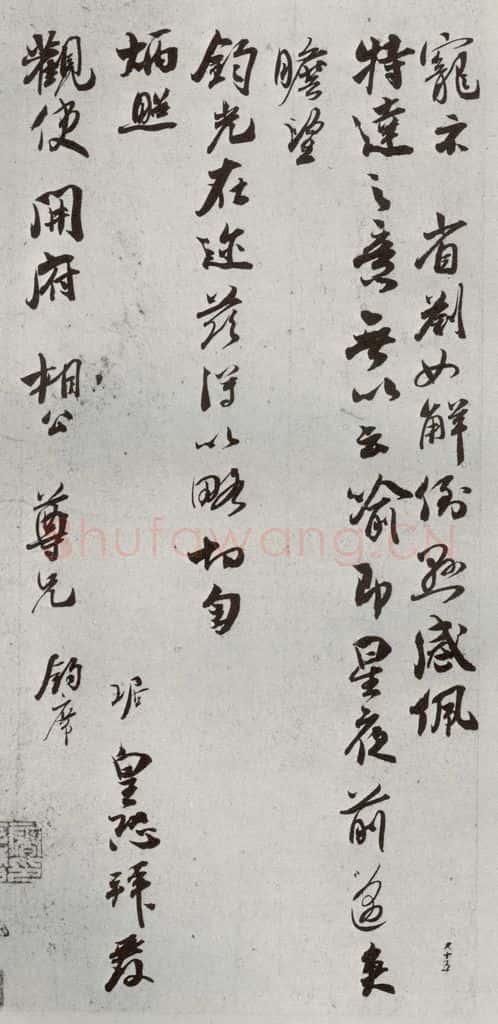 寵示 省劄如解倒懸感佩
特達之意無以云喻即星夜前邁
瞻望
鈞光在邇茲得以略切匄
炳照
琚皇恐拜覆
觀使 開府 相公 尊兄 鈞席
shufawang.CN